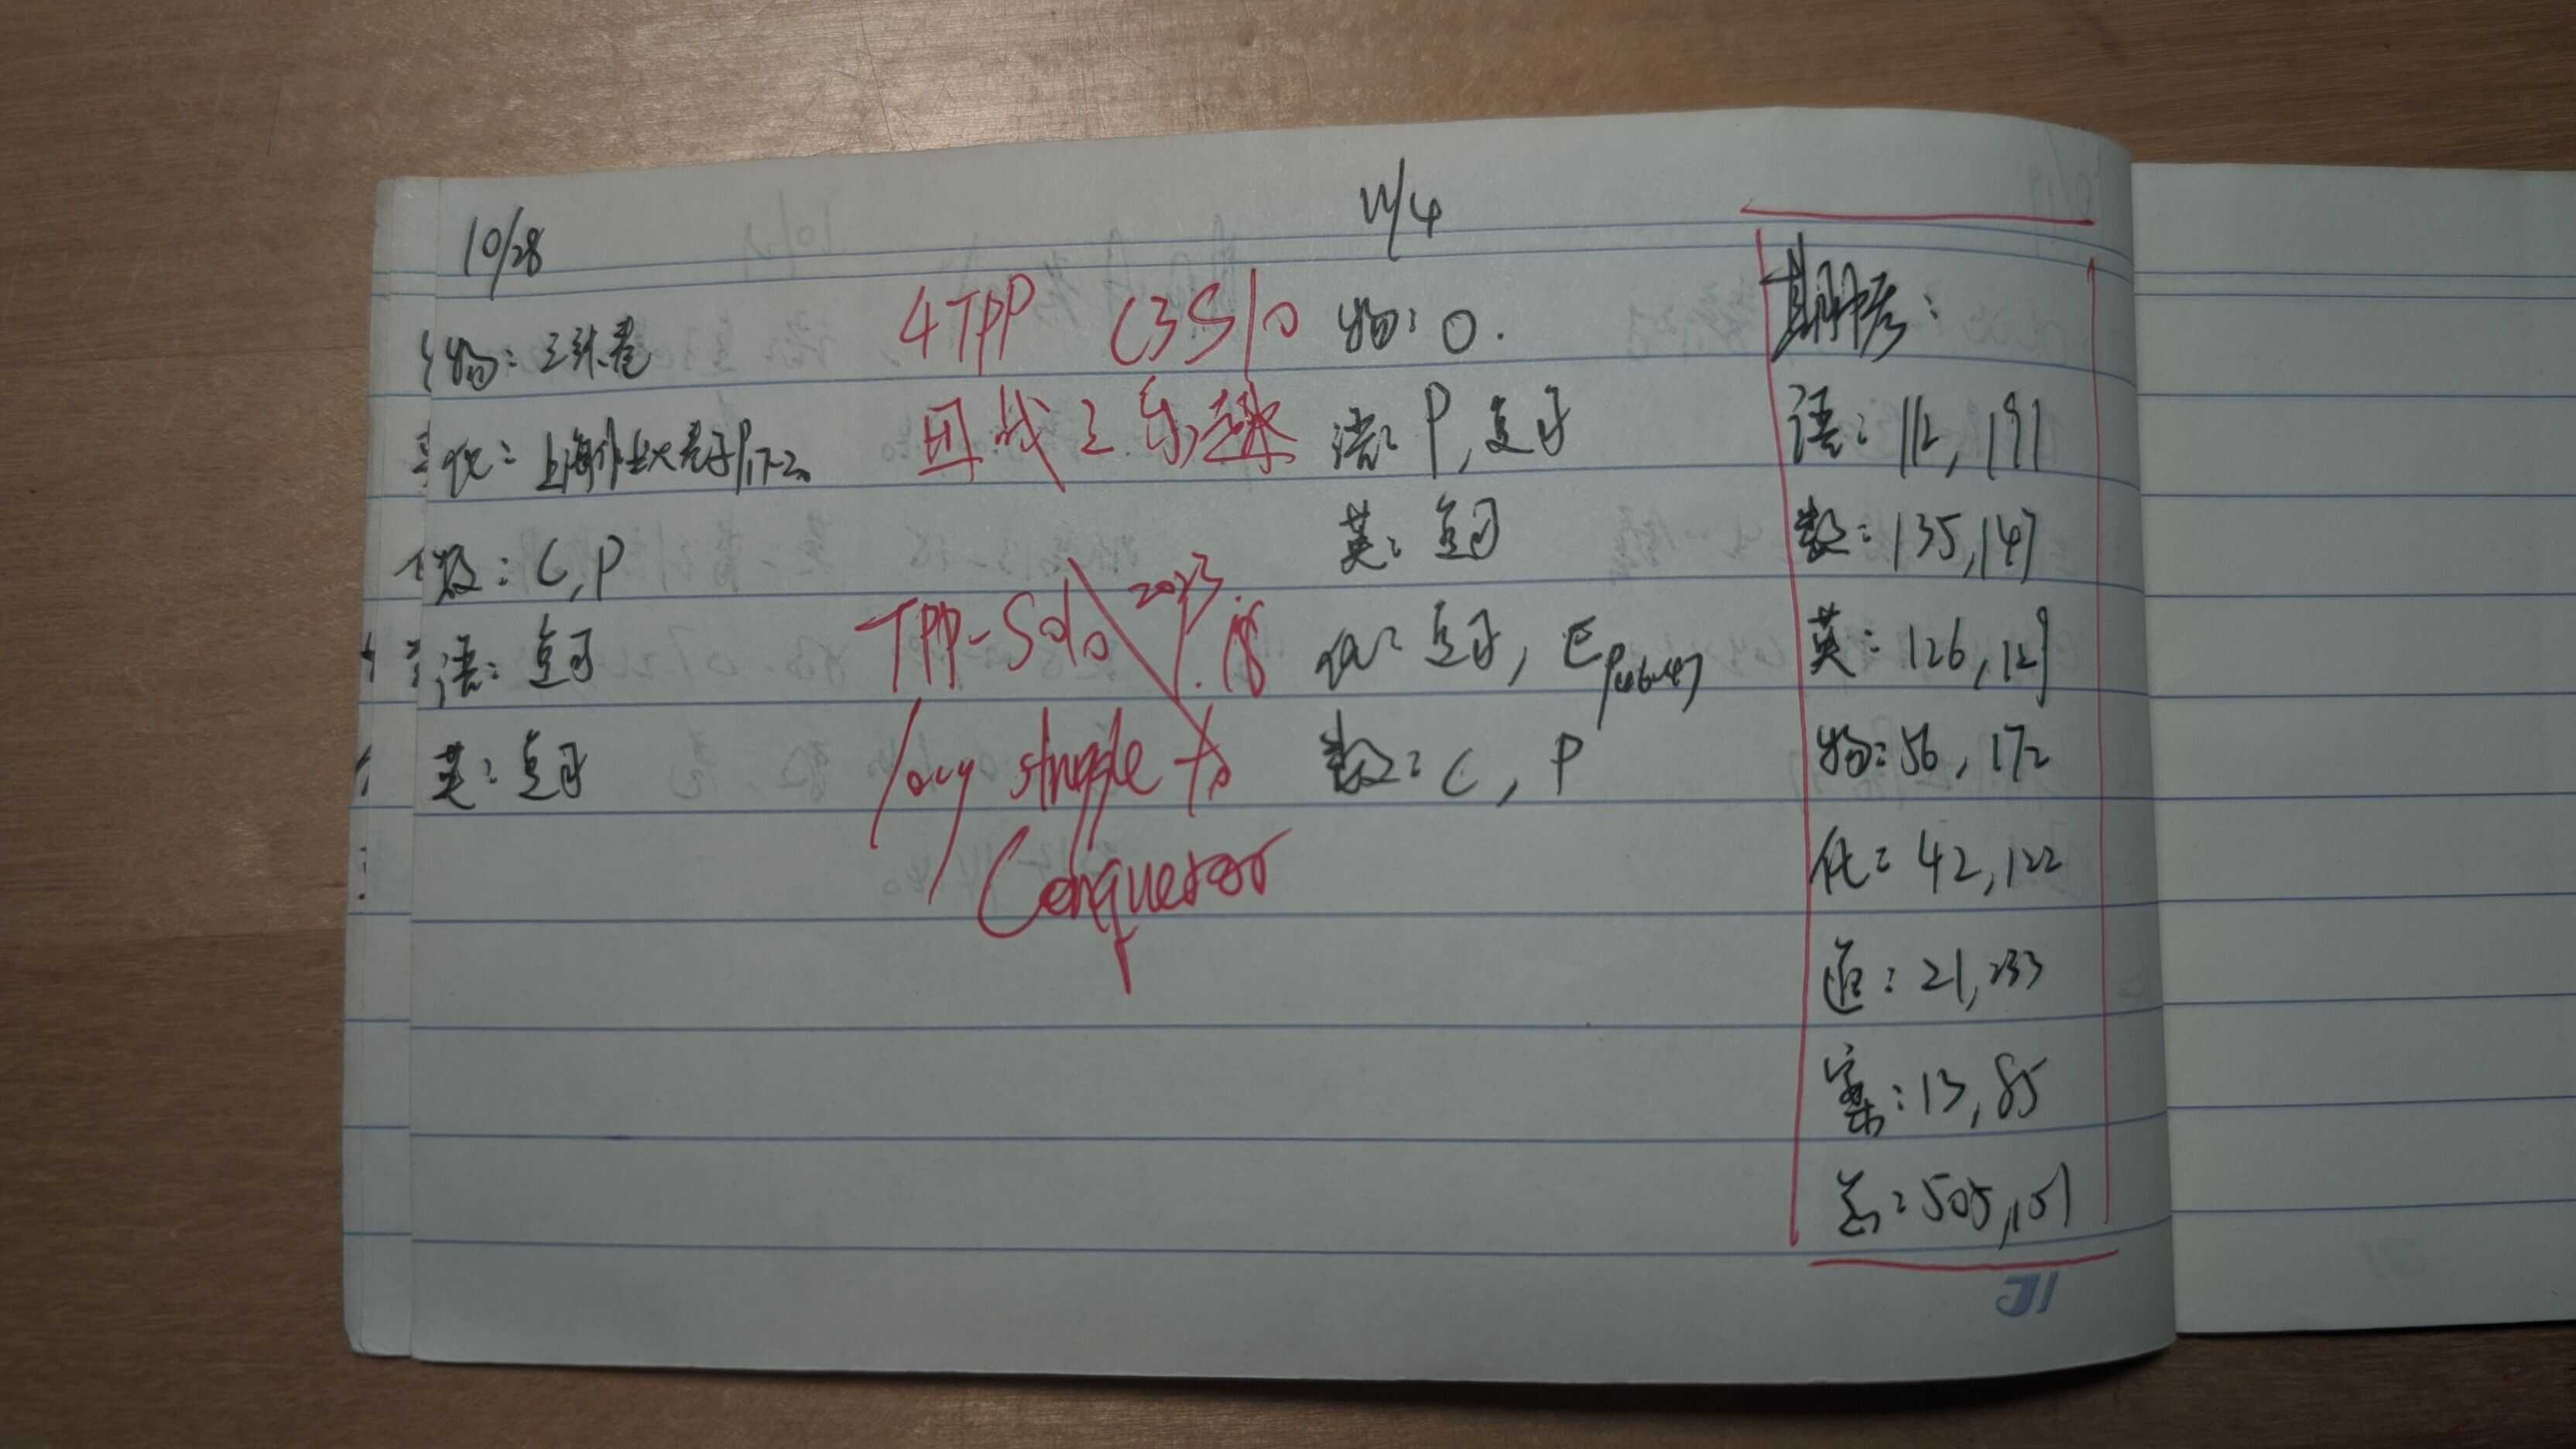 10/28
物: 三张卷
化: 上海作业大卷子P17-20
数: C, P
语:
英:
4TPP C3S10
团战之乐趣
TPP-Solo 2023.
long struggle to
Conqueror
11/4
物: 0.
语: P,
英:
化: , E P46-47
数: C, P
期中考:
语: 112, 191
数: 135, 147
英: 126, 129
物: 56, 172
化: 42, 122
道: 21, 233
案: 13, 85
总: 505, 151